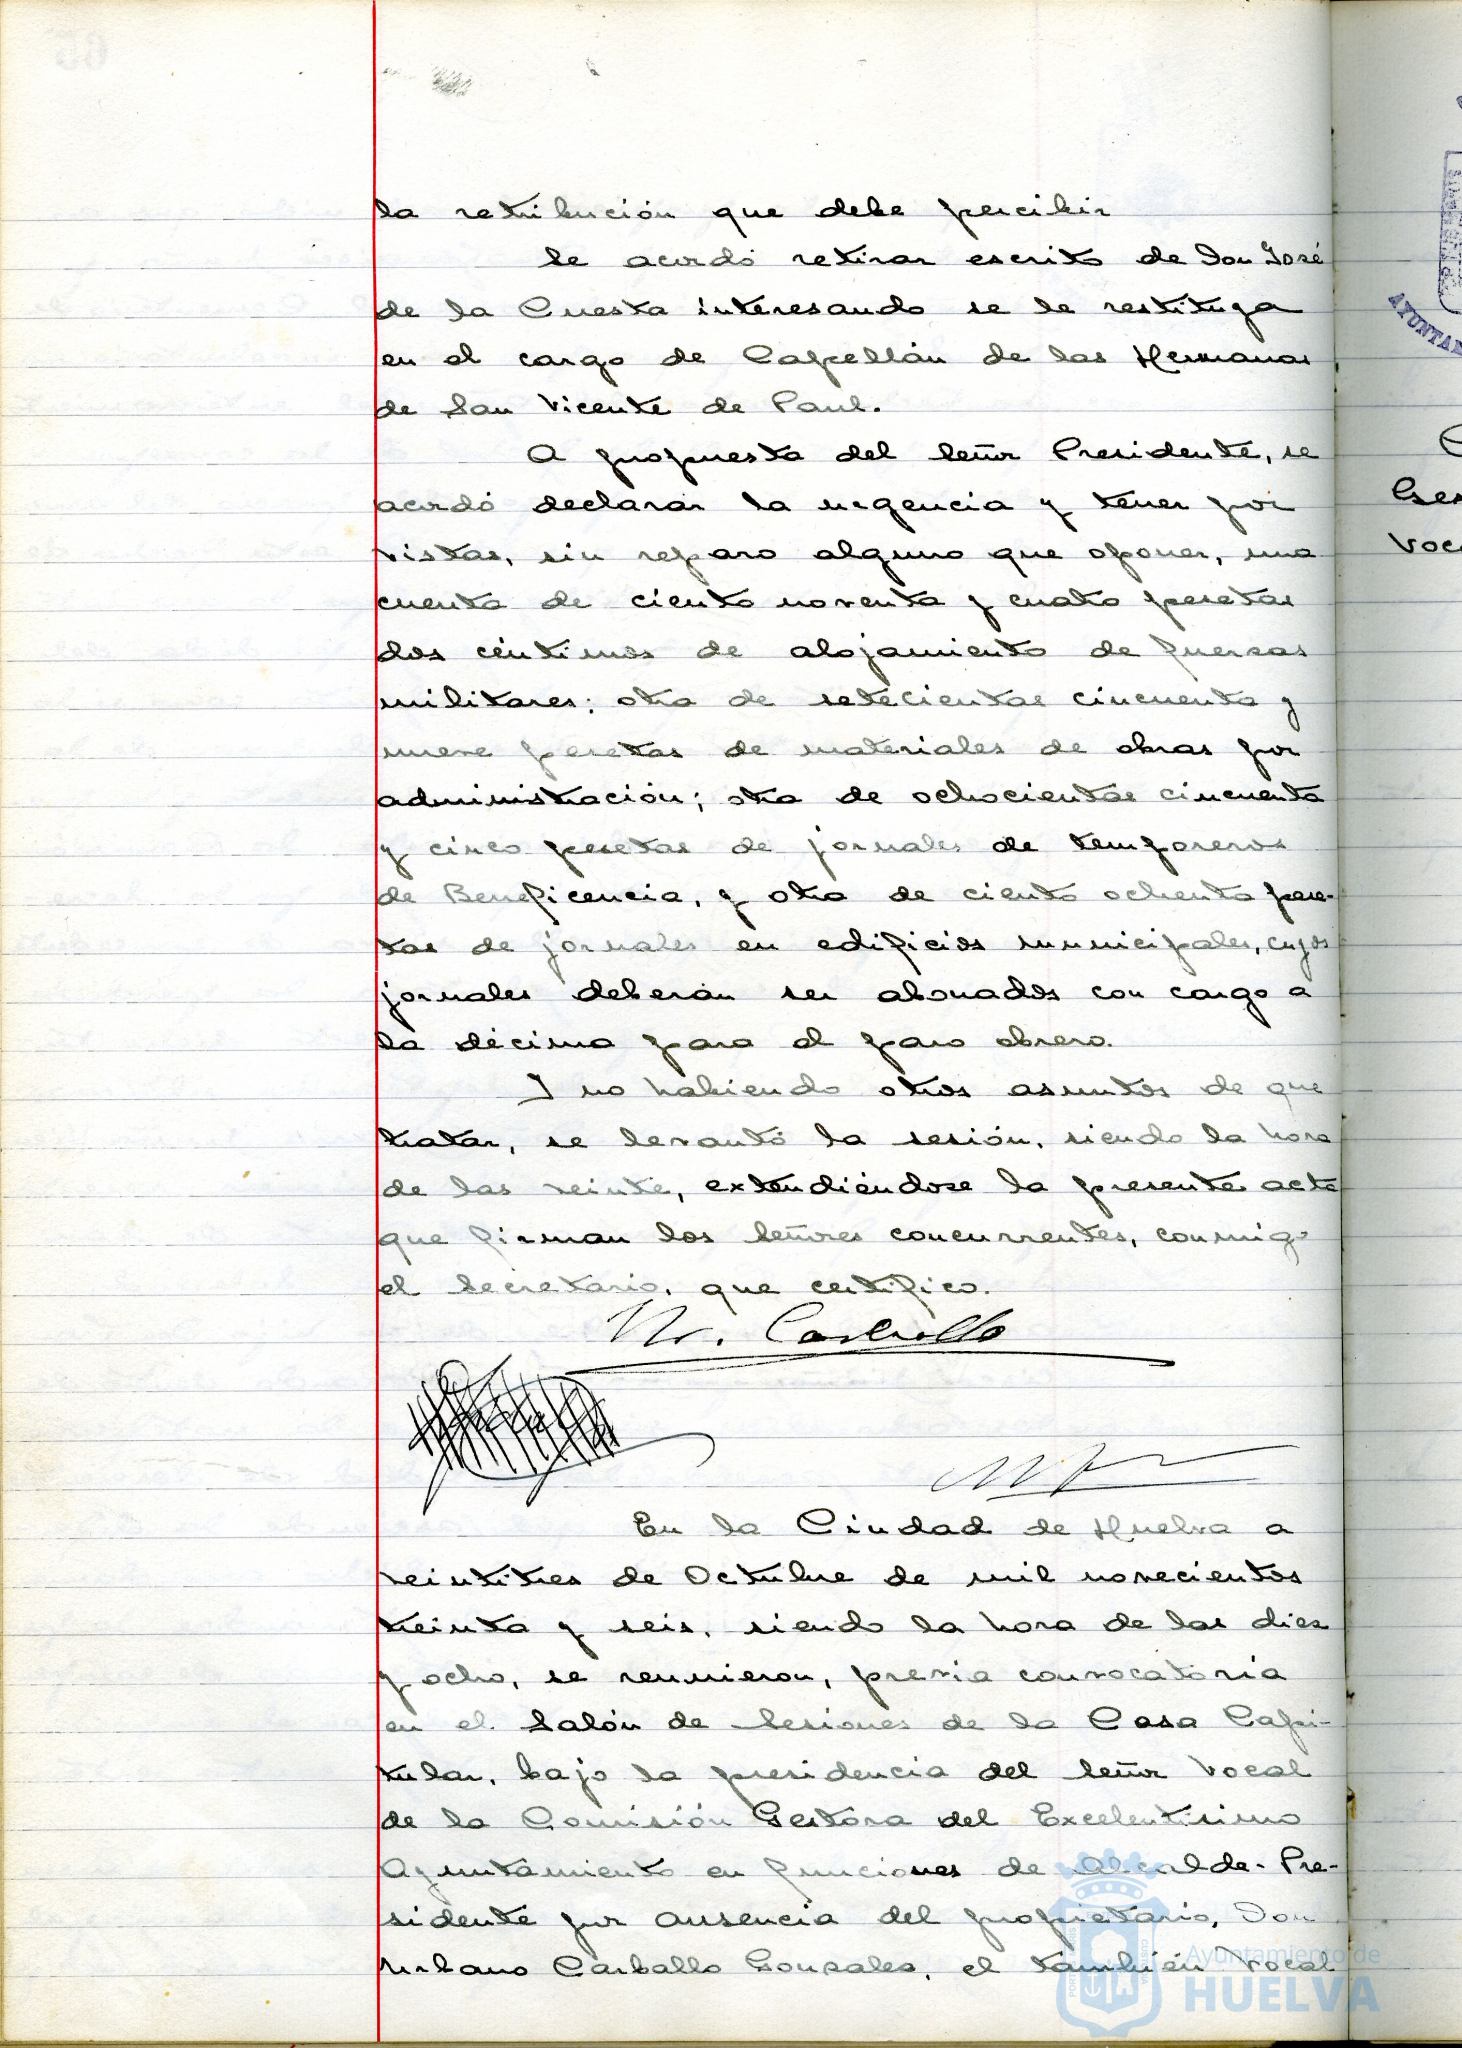 la retribución que debe percibir
Se acordó retirar escrito de Don José
de la Cuesta interesando se le restituya
en el cargo de Capellán de las Hermanas
de San Vicente de Paul.
A propuesta del Señor Presidente, se
acordó declarar la urgencia y tener por
vistas, sin reparo alguno que oponer, una
cuenta de ciento noventa y cuatro pesetas
dos céntimos de alojamiento de fuerzas
militares; otra de setecientas cincuenta y
nueve pesetas de materiales de obras por
administración; otra de ochocientas cincuenta
y cinco pesetas de jornales de temporeros
de Beneficencia, y otra de ciento ochenta pese-
tas de jornales en edificios municipales, cuyos
jornales deberán ser abonados con cargo a
la décima para el paro obrero.
Y no habiendo otros asuntos de que
tratar, se levantó la sesión, siendo la hora
de las veinte, extendiéndose la presente acta
que firman los Señores concurrentes, conmigo
el Secretario, que certifico.
Carballo
En la Ciudad de Huelva a
veintitres de Octubre de mil novecientos
treinta y seis, siendo la hora de las diez
y ocho, se reunieron, previa convocatoria
en el Salón de Sesiones de la Casa Capi-
tular, bajo la presidencia del Señor Vocal
de la Comisión Gestora del Excelentisimo
Ayuntamiento en funciones de Alcalde-Pre-
sidente por ausencia del propietario, Don
Urbano Carballo Gonzales, el también Vocal
Ayuntamiento de
HUELVA